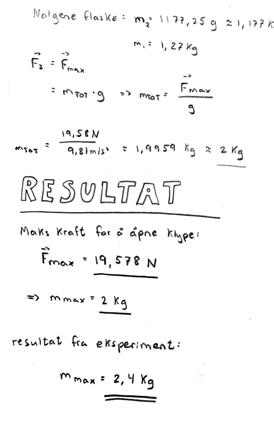 Nalgene flaske: m₂ = 1177,25 g ≈ 1,177 K
m₁ = 1,27 Kg
F⃗₂ = F⃗max
= mTOT · g => mTOT = F⃗max / g
mTOT = 19,58 N / 9,81 m/s² = 1,9959 Kg ≈ 2 Kg
RESULTAT
Maks kraft for å åpne klype:
F⃗max = 19,578 N
=> m max = 2 Kg
resultat fra eksperiment:
m max = 2,4 Kg